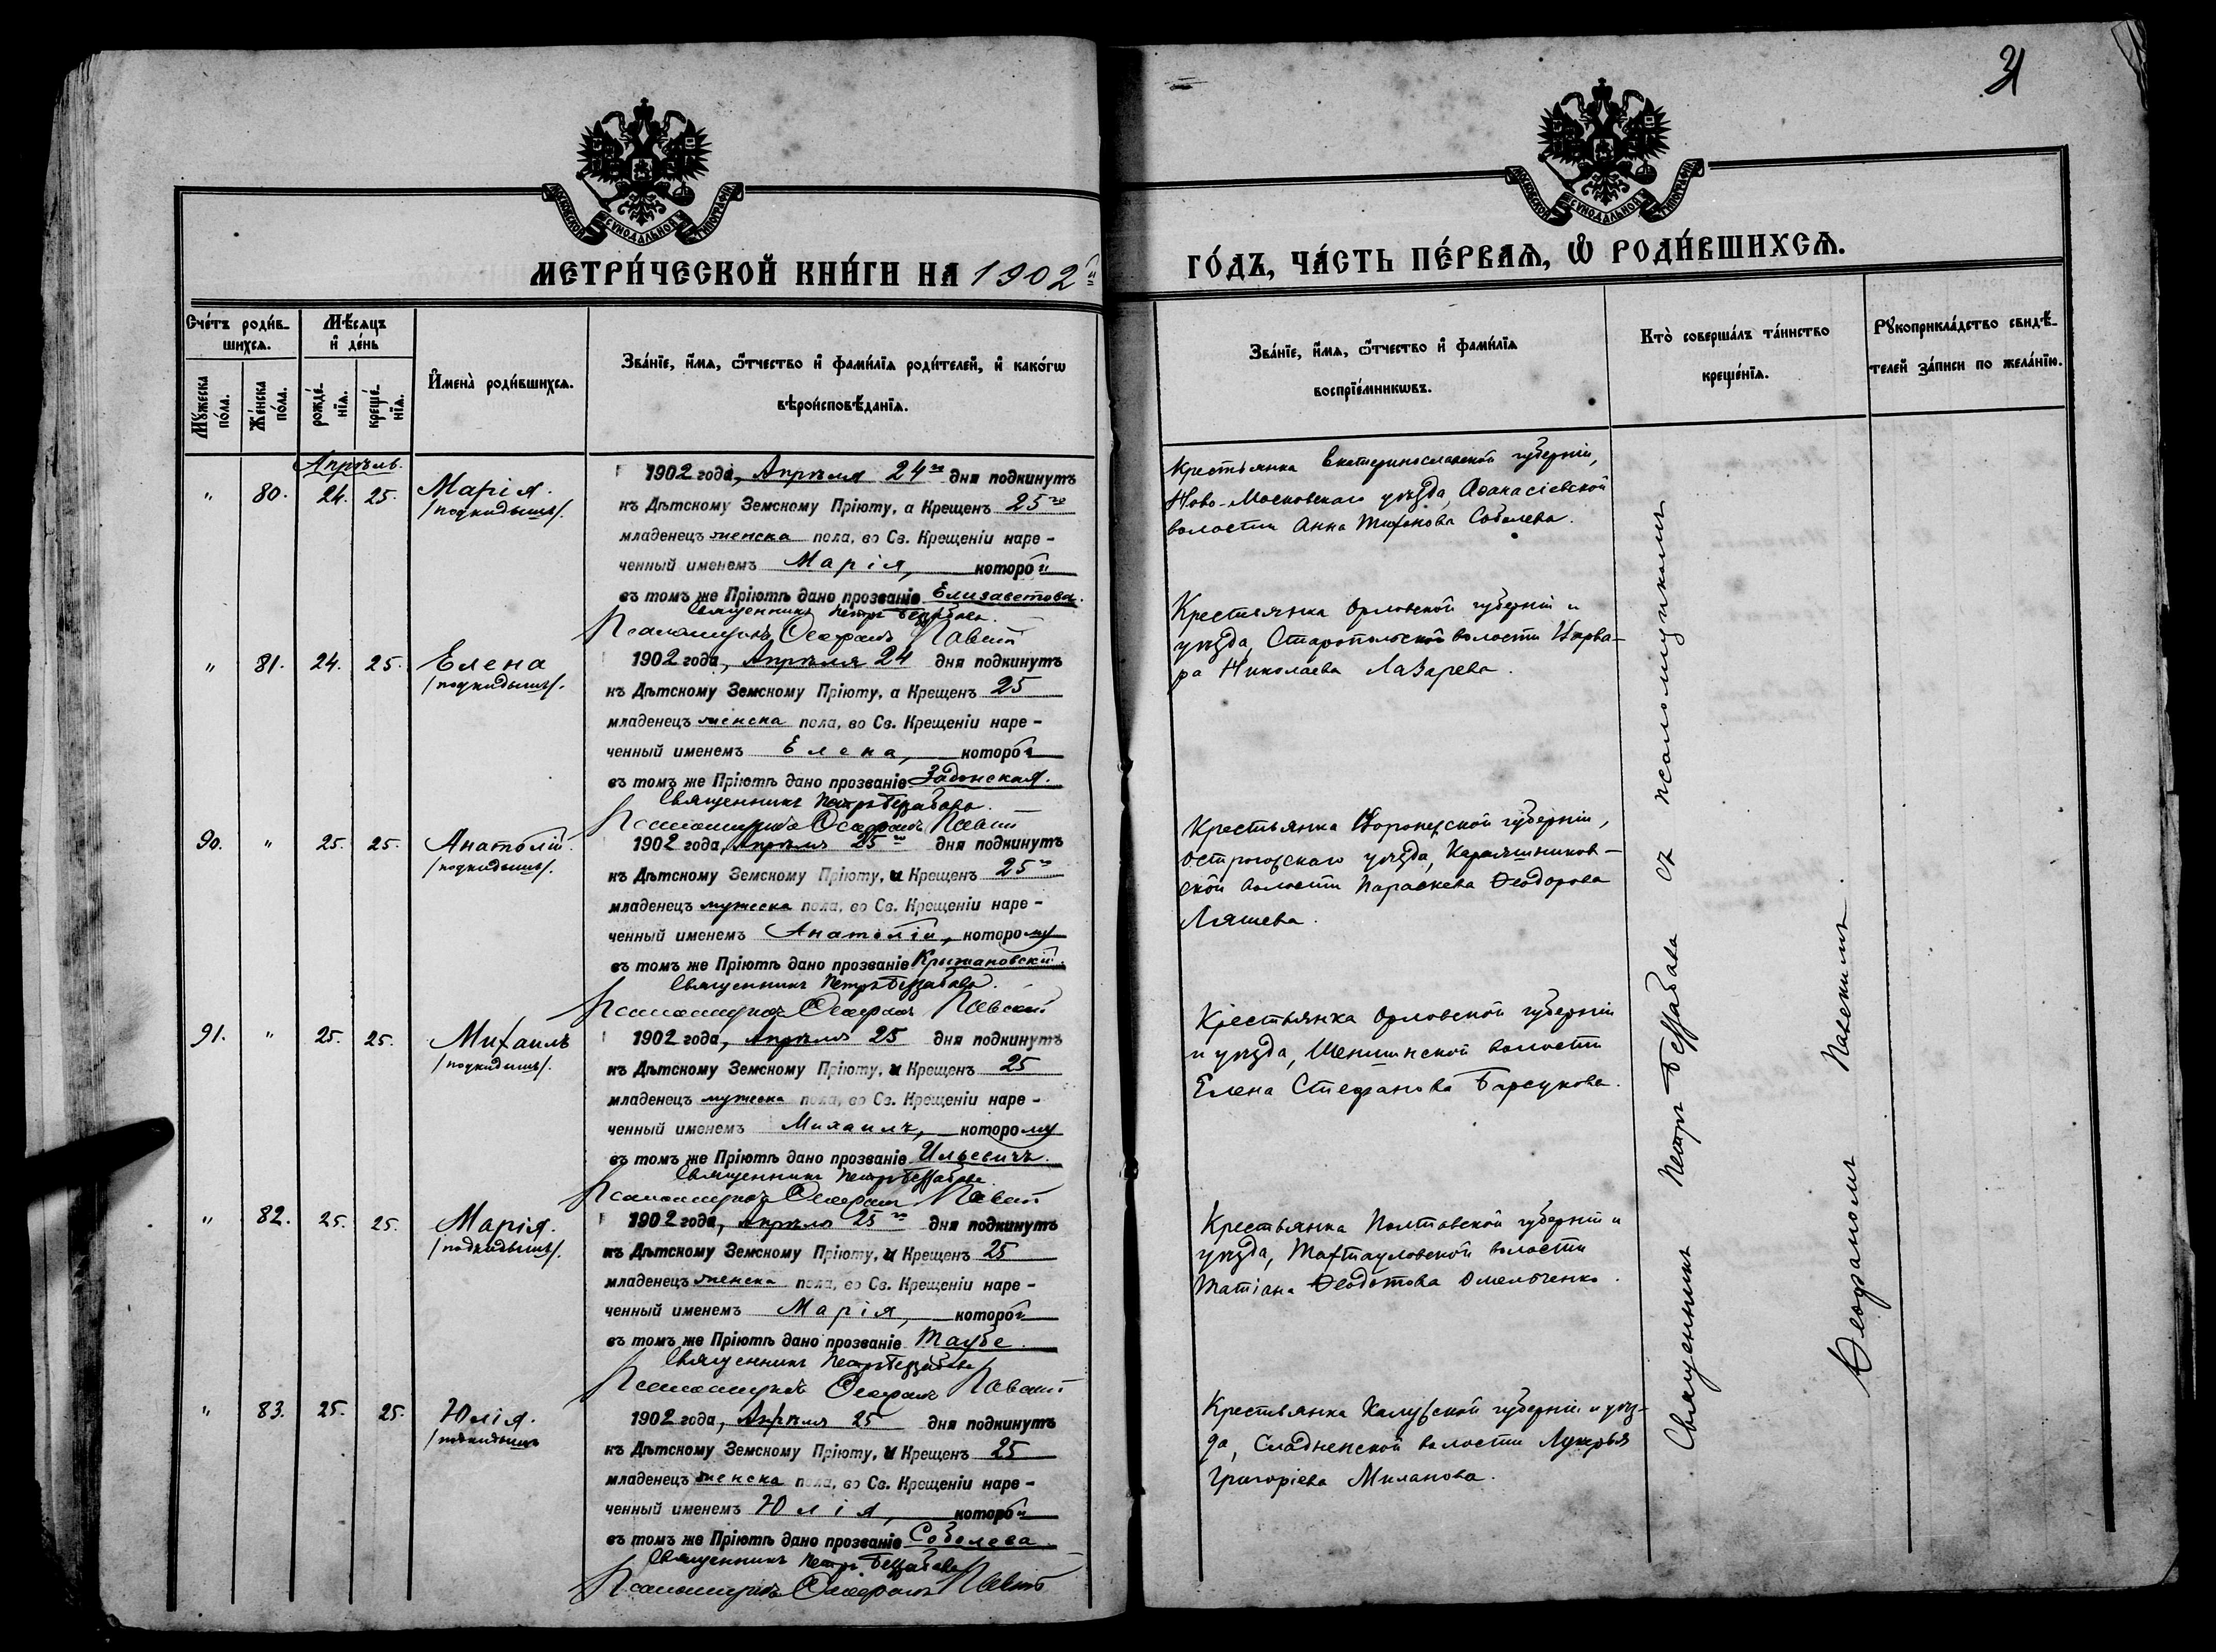 31
МОСКОВСКОЙ СѴНОДАЛЬНОЙ ТИПОГРАФІИ
МОСКОВСКОЙ СѴНОДАЛЬНОЙ ТИПОГРАФІИ
МЕТРИ́ЧЕСКОЙ КНИ́ГИ НА 1902й
ГО́ДЪ, ЧА́СТЬ ПЕ́РВАѦ, Ѡ РОДИ́ВШИХСѦ.
Сче́тъ роди́в-
шихсѧ.
Мꙋ́жеска
по́ла.
Же́нска
по́ла.
Мѣ́сѧцъ
и҆ де́нь
рожде́-
нїѧ.
креще́-
нїѧ.
И҆мена̀ роди́вшихсѧ.
Зва́нїе, и҆́мѧ, ѻ҆́тчество и҆ фами́лїѧ роди́телей, и҆ како́гѡ
вѣроисповѣ́данїѧ.
Зва́нїе, и҆́мѧ, ѻ҆́тчество и҆ фами́лїѧ
воспрїе́мникѡвъ.
Кто̀ соверша́лъ та́инство
креще́нїѧ.
Рꙋкоприкла́дство свидѣ́-
телей за́писи по жела́нїю.
Апрѣль.
" 80. 24. 25. Марія.
/подкидышъ/.
1902 года, Апрѣля 24го дня подкинутъ
къ Дѣтскому Земскому Пріюту, а Крещенъ 25го
младенецъ женска пола, во Св. Крещеніи наре-
ченный именемъ Марія, которой
въ томъ же Пріютѣ дано прозваніе Елизаветова.
Священникъ Петръ Беззабава.
Псаломщикъ Ѳеофанъ
Крестьянка Екатеринославской губерніи,
Ново-Московскаго уѣзда, Аѳанасіевской
волости Анна Тихонова Соболева.
" 81. 24. 25. Елена
/подкидышъ/.
1902 года, Апрѣля 24 дня подкинутъ
къ Дѣтскому Земскому Пріюту, а Крещенъ 25
младенецъ женска пола, во Св. Крещеніи наре-
ченный именемъ Елена, которой
въ томъ же Пріютѣ дано прозваніе Задонская.
Священникъ Петръ Беззабава.
Псаломщикъ Ѳеофанъ
Крестьянка Орловской губерніи и
уѣзда, волости Варва-
ра Николаева Лазарева.
90. " 25. 25. Анатолій.
/подкидышъ/.
1902 года, Апрѣля 25го дня подкинутъ
къ Дѣтскому Земскому Пріюту, и Крещенъ 25го
младенецъ мужеска пола, во Св. Крещеніи наре-
ченный именемъ Анатолій, которому
въ томъ же Пріютѣ дано прозваніе Крыжановскій.
Священникъ Петръ Беззабава.
Псаломщикъ Ѳеофанъ
Крестьянка Воронежской губерніи,
Острогожскаго уѣзда, Караяшников-
ской волости Параскева Ѳеодорова
Ляшева.
91. " 25. 25. Михаилъ
/подкидышъ/.
1902 года, Апрѣля 25 дня подкинутъ
къ Дѣтскому Земскому Пріюту, и Крещенъ 25
младенецъ мужеска пола, во Св. Крещеніи наре-
ченный именемъ Михаилъ, которому
въ томъ же Пріютѣ дано прозваніе Ильевичъ.
Священникъ Петръ Беззабава.
Псаломщикъ Ѳеофанъ
Крестьянка Орловской губерніи
и уѣзда, волости
Елена Стефанова Барсукова.
" 82. 25. 25. Марія.
/подкидышъ/.
1902 года, Апрѣля 25го дня подкинутъ
къ Дѣтскому Земскому Пріюту, и Крещенъ 25
младенецъ женска пола, во Св. Крещеніи наре-
ченный именемъ Марія, которой
въ томъ же Пріютѣ дано прозваніе Таубе.
Священникъ Петръ Беззабава
Псаломщикъ Ѳеофанъ
Крестьянка Полтавской губерніи и
уѣзда, Тахтауловской волости
Татіана Ѳеодотова Омельченко.
" 83. 25. 25. Юлія.
/подкидышъ
1902 года, Апрѣля 25 дня подкинутъ
къ Дѣтскому Земскому Пріюту, и Крещенъ 25
младенецъ женска пола, во Св. Крещеніи наре-
ченный именемъ Юлія, которой
въ томъ же Пріютѣ дано прозваніе Соболева.
Священникъ Петръ Беззабава
Псаломщикъ Ѳеофанъ
Крестьянка Калужской губерніи и уѣз-
да, волости Лукерья
Григоріева Миланова.
Священникъ Петръ Беззабава съ псаломщикомъ
Ѳеофаномъ